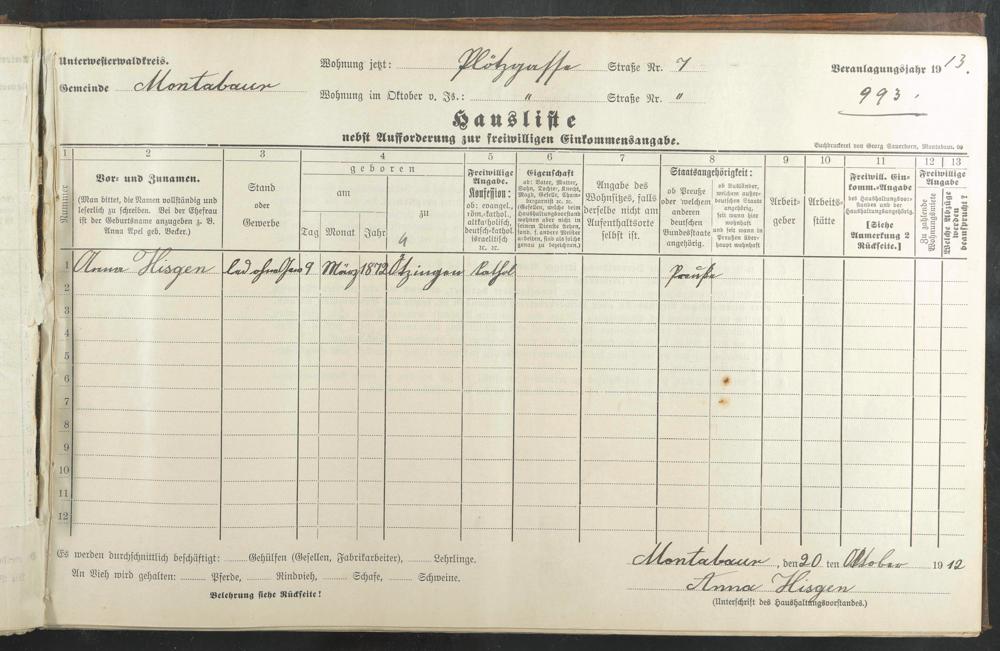 Unterwesterwaldkreis.
Wohnung jetzt: Plötzgasse Straße Nr. 7
Veranlagungsjahr 1913.
Gemeinde Montabaur
Wohnung im Oktober v. Js.: " Straße Nr. "
993.
Hausliste
nebst Aufforderung zur freiwilligen Einkommensangabe.
Buchdruckerei von Georg Sauerborn, Montabaur.
1 2 3 4 5 6 7 8 9 10 11 12 13
Nummer
Vor- und Zunamen.
(Man bittet, die Namen vollständig und
leserlich zu schreiben. Bei der Ehefrau
ist der Geburtsname anzugeben z. B.
Anna Apel geb. Becker.)
Stand
oder
Gewerbe
geboren
am
zu
Tag Monat Jahr
Freiwillige
Angabe.
Konfession:
ob: evangel.,
röm.-kathol.,
altkatholisch,
deutsch-kathol.
israelitisch
ec. ec.
Eigenschaft
ob: Vater, Mutter,
Sohn, Tochter, Knecht,
Magd, Geselle, Cham-
bergarnist ec. ec.
(Gesellen, welche beim
Haushaltungsvorstand
wohnen aber nicht in
seinem Dienste stehen,
sond. f. andere Meister
arbeiten, sind als solche
genau zu bezeichnen.)
Angabe des
Wohnsitzes, falls
derselbe nicht am
Aufenthaltsorte
selbst ist.
Staatsangehörigkeit:
ob Preuße
oder welchem
anderen
deutschen
Bundesstaate
angehörig.
ob Ausländer,
welchem außer-
deutschen Staate
angehörig,
seit wann hier
wohnhaft
und seit wann in
Preußen über-
haupt wohnhaft
Arbeit-
geber
Arbeits-
stätte
Freiwill. Ein-
komm.-Angabe
des Haushaltungsvor-
standes und der
Haushaltungsangehörig.
[Siehe
Anmerkung 2
Rückseite.]
Freiwillige
Angabe
Zu zahlende
Wohnungsmiete
Welche Abzüge
werden
beansprucht?
1 Anna Hisgen 9 März 1872 Ötzingen kathol Preuße
2
3
4
5
6
7
8
9
10
11
12
Es werden durchschnittlich beschäftigt: Gehülfen (Gesellen, Fabrikarbeiter), Lehrlinge.
An Vieh wird gehalten: Pferde, Rindvieh, Schafe, Schweine.
Belehrung siehe Rückseite!
Montabaur, den 20 ten Oktober 1912
Anna Hisgen
(Unterschrift des Haushaltungsvorstandes.)